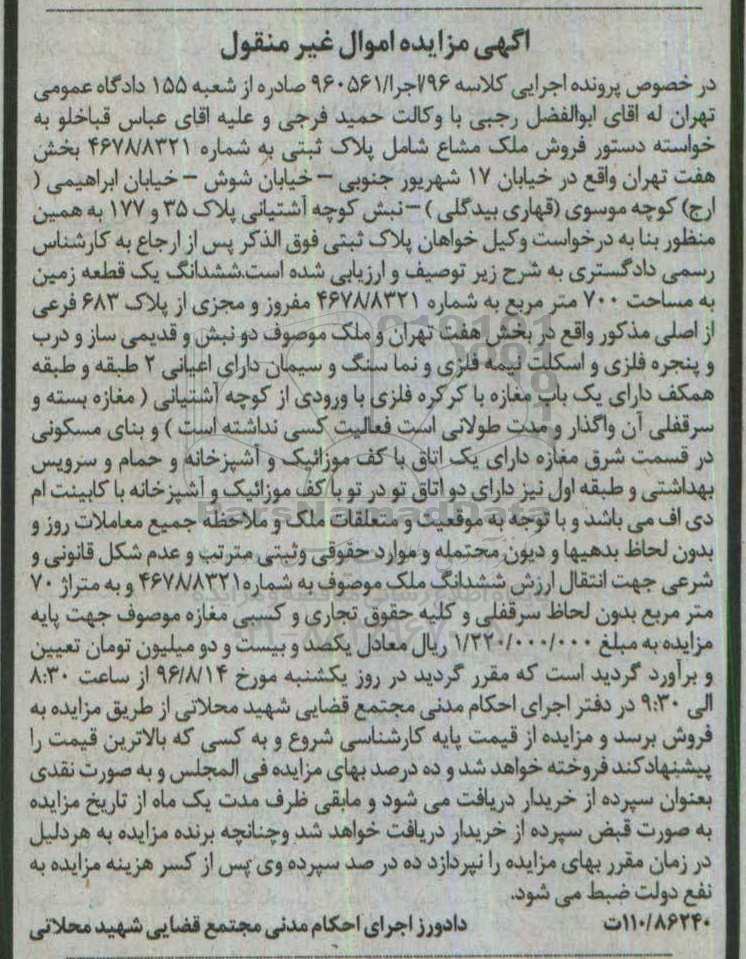 آگهی مزایده اموال غیر منقول
در خصوص پرونده اجرایی کلاسه ۹۶/اجرا/۹۶۰۵۶۱ صادره از شعبه ۱۵۵ دادگاه عمومی
تهران له اقای ابوالفضل رجبی با وکالت حمید فرجی و علیه اقای عباس قباخلو به
خواسته دستور فروش ملک مشاع شامل پلاک ثبتی به شماره ۴۶۷۸/۸۳۲۱ بخش
هفت تهران واقع در خیابان ۱۷ شهریور جنوبی – خیابان شوش – خیابان ابراهیمی (
ارج) کوچه موسوی (قهاری بیدگلی ) –نبش کوچه آشتیانی پلاک ۳۵ و ۱۷۷ به همین
منظور بنا به درخواست وکیل خواهان پلاک ثبتی فوق الذکر پس از ارجاع به کارشناس
رسمی دادگستری به شرح زیر توصیف و ارزیابی شده است.ششدانگ یک قطعه زمین
به مساحت ۷۰۰ متر مربع به شماره ۴۶۷۸/۸۳۲۱ مفروز و مجزی از پلاک ۶۸۳ فرعی
از اصلی مذکور واقع در بخش هفت تهران و ملک موصوف دو نبش و قدیمی ساز و درب
و پنجره فلزی و اسکلت نیمه فلزی و نما سنگ و سیمان دارای اعیانی ۲ طبقه و طبقه
همکف دارای یک باب مغازه با کرکره فلزی با ورودی از کوچه آشتیانی ( مغازه بسته و
سرقفلی آن واگذار و مدت طولانی است فعالیت کسی نداشته است ) و بنای مسکونی
در قسمت شرق مغازه دارای یک اتاق با کف موزائیک و آشپزخانه و حمام و سرویس
بهداشتی و طبقه اول نیز دارای دو اتاق تو در تو با کف موزائیک و آشپزخانه با کابینت ام
دی اف می باشد و با توجه به موقعیت و متعلقات ملک و ملاحظه جمیع معاملات روز و
بدون لحاظ بدهیها و دیون محتمله و موارد حقوقی وثبتی مترتب و عدم شکل قانونی و
شرعی جهت انتقال ارزش ششدانگ ملک موصوف به شماره۴۶۷۸/۸۳۲۱ و به متراژ ۷۰
متر مربع بدون لحاظ سرقفلی و کلیه حقوق تجاری و کسبی مغازه موصوف جهت پایه
مزایده به مبلغ ۱/۲۲۰/۰۰۰/۰۰۰ ریال معادل یکصد و بیست و دو میلیون تومان تعیین
و برآورد گردید است که مقرر گردید در روز یکشنبه مورخ ۹۶/۸/۱۴ از ساعت ۸:۳۰
الی ۹:۳۰ در دفتر اجرای احکام مدنی مجتمع قضایی شهید محلاتی از طریق مزایده به
فروش برسد و مزایده از قیمت پایه کارشناسی شروع و به کسی که بالاترین قیمت را
پیشنهاد کند فروخته خواهد شد و ده درصد بهای مزایده فی المجلس و به صورت نقدی
بعنوان سپرده از خریدار دریافت می شود و مابقی ظرف مدت یک ماه از تاریخ مزایده
به صورت قبض سپرده از خریدار دریافت خواهد شد وچنانچه برنده مزایده به هردلیل
در زمان مقرر بهای مزایده را نپردازد ده در صد سپرده وی پس از کسر هزینه مزایده به
نفع دولت ضبط می شود.
۱۱۰/۸۶۲۴۰ت دادورز اجرای احکام مدنی مجتمع قضایی شهید محلاتی
ParsNamadData